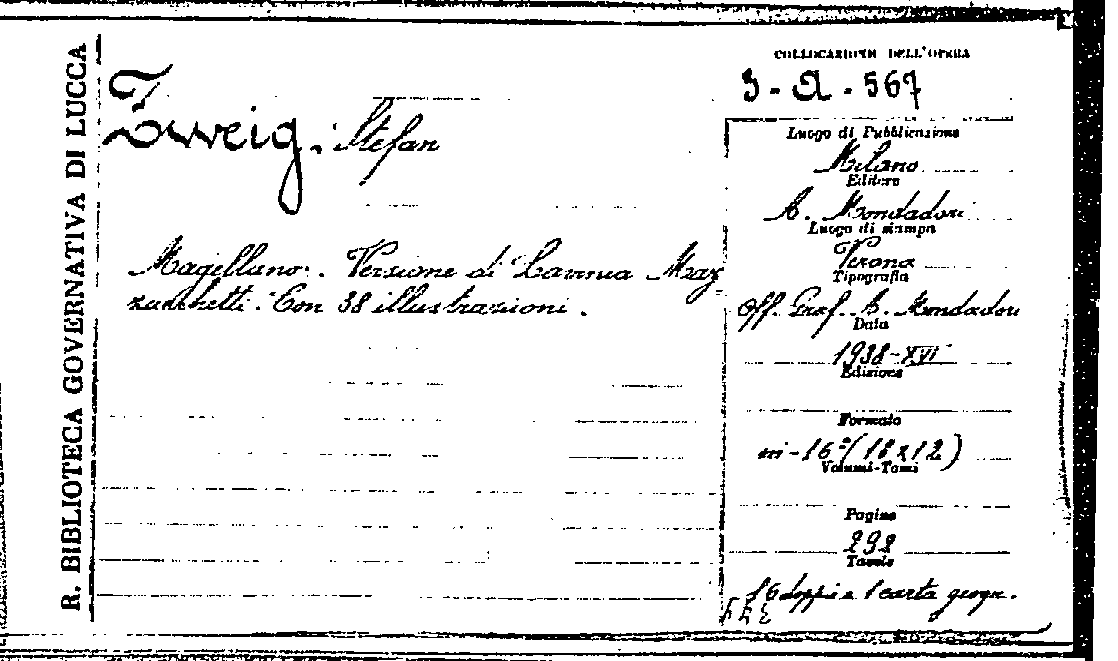 R. BIBLIOTECA GOVERNATIVA DI LUCCA
Zweig, Stefan
Magellano. Versione di Lavinia Maz-
zucchetti. Con 38 illustrazioni.
COLLOCAZIONE DELL'OPERA
3 - Q - 567
Luogo di Pubblicazione
Milano
Editore
A. Mondadori
Luogo di stampa
Verona
Tipografia
Off. Graf. A. Mondadori
Data
1938-XVI
Edizione
Formato
in-16° (18x12)
Volumi-Tomi
Pagine
292
Tavole
16 doppie 1 carta geogr.